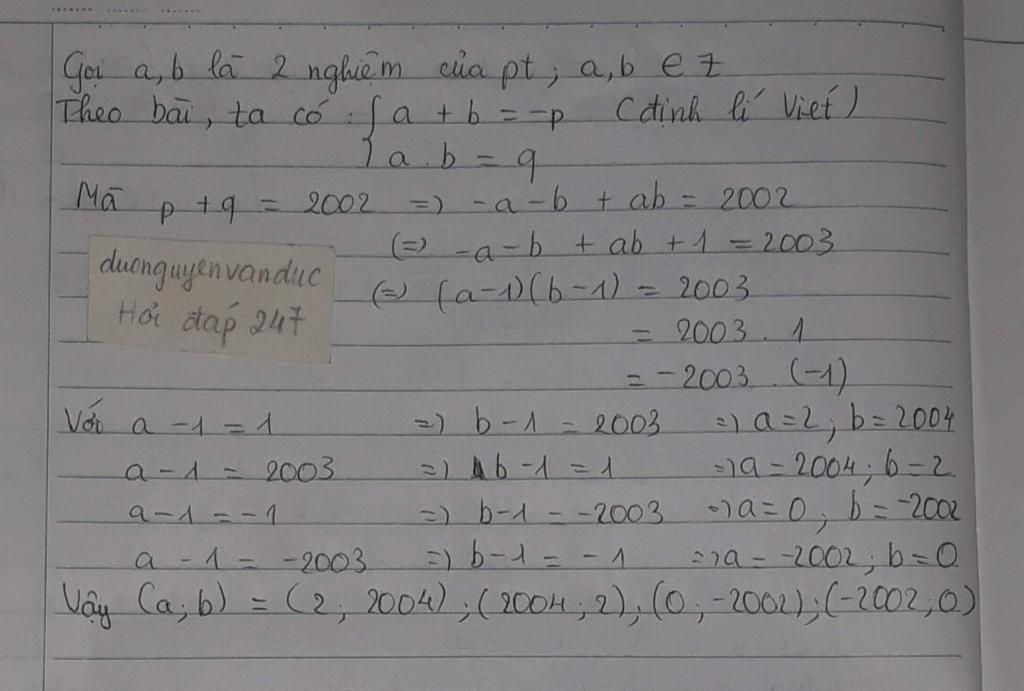 Gọi a, b là 2 nghiệm của pt; a, b ∈ Z
Theo bài, ta có: { a + b = -p (định lí Viét)
a.b = q
Mà p + q = 2002 => -a - b + ab = 2002
(=) -a - b + ab + 1 = 2003
(=) (a-1)(b-1) = 2003
= 2003 . 1
= -2003 . (-1)
duonguyenvanduc
Hỏi đáp 247
Với a - 1 = 1 => b - 1 = 2003 => a = 2; b = 2004
a - 1 = 2003 => b - 1 = 1 => a = 2004; b = 2
a - 1 = -1 => b - 1 = -2003 => a = 0; b = -2002
a - 1 = -2003 => b - 1 = -1 => a = -2002; b = 0
Vậy (a; b) = (2; 2004); (2004; 2); (0; -2002); (-2002; 0)